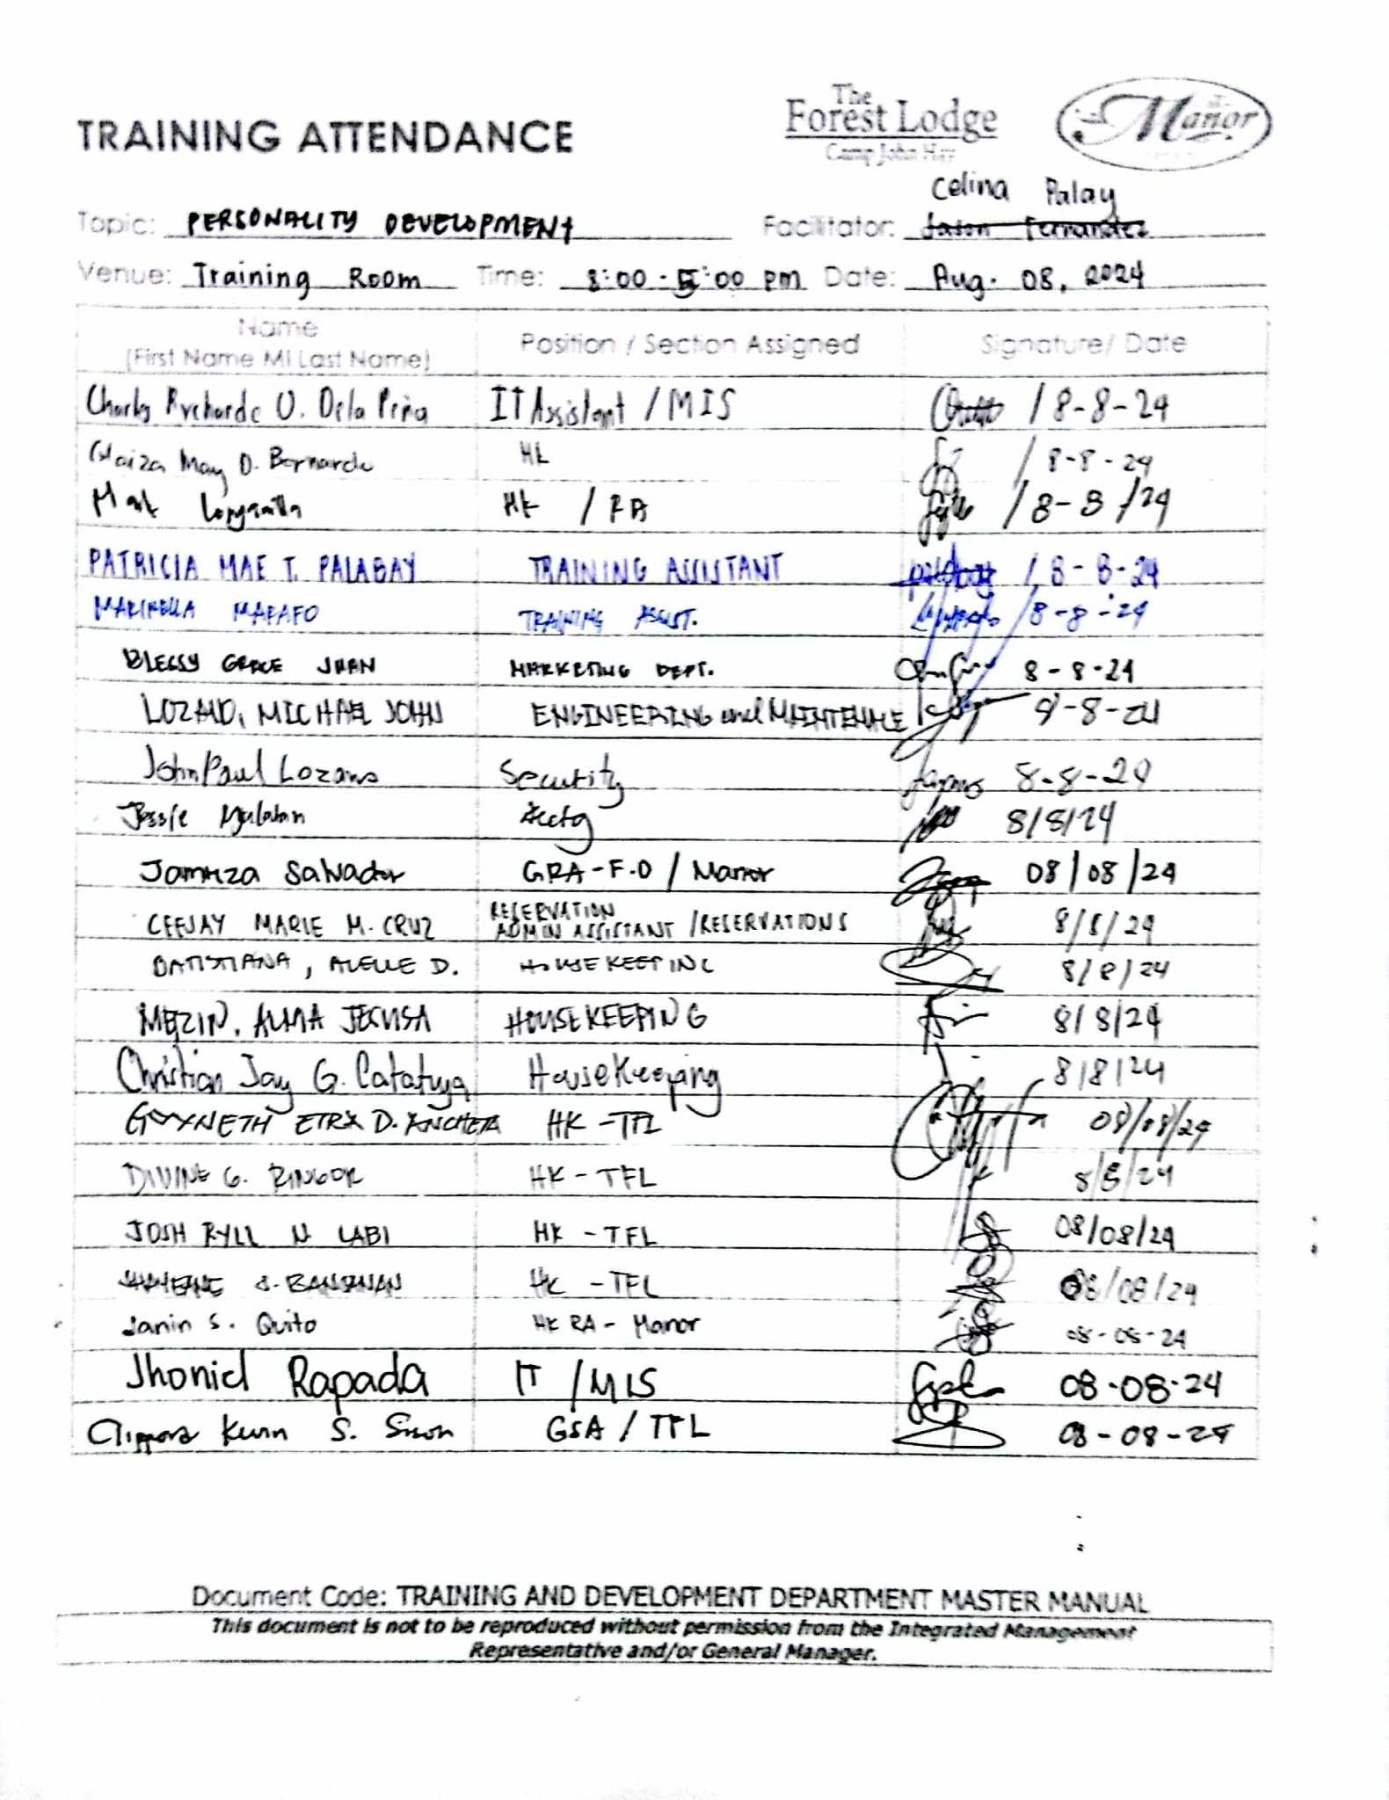 The
Forest Lodge
Camp John Hay
Manor
TRAINING ATTENDANCE
Celina Palay
Topic: PERSONALITY DEVELOPMENT Facilitator: Jason Fernandez
Venue: Training Room Time: 8:00 - 5:00 pm Date: Aug. 08, 2024
Name
(First Name MI Last Name) Position / Section Assigned Signature/ Date
Charls Rycharde U. Dela Peña IT Assistant / MIS / 8-8-24
May D. Bernardo HK / 8-8-24
Mark HK / RA / 8-8/24
PATRICIA MAE T. PALABAY TRAINING ASSISTANT / 8-8-24
MARINELLA MAPAFO TRAINING ASSIST. / 8-8-24
BLESSY GRACE JUAN MARKETING DEPT. 8-8-24
LOZANO, MICHAEL JOHN ENGINEERING and MAINTENANCE 8-8-24
John Paul Lozano Security 8-8-24
Jessie Acctg 8/8/24
Jamaza Salvador GRA-F.O / Manor 08/08/24
CEEJAY MARIE M. CRUZ RESERVATION ADMIN ASSISTANT /RESERVATIONS 8/8/24
BATISTIANA, ALELLE D. HOUSEKEEPING 8/8/24
MERIN, ALMA JECUSA HOUSEKEEPING 8/8/24
Christian Jay G. Catatuya HouseKeeping 8/8/24
GWYNETH ETRX D. ANCHETA HK-TFL 08/08/24
DIVINE G. RINGOR HK-TFL 8/8/24
JOSH RYLL N LABI HK-TFL 08/08/24
S. HK-TFL 08/08/24
Janin S. Quito HK RA - Manor 08-08-24
Jhoniel Rapada IT /MIS 08-08-24
Kevin S. GSA / TFL 08-08-24
Document Code: TRAINING AND DEVELOPMENT DEPARTMENT MASTER MANUAL
This document is not to be reproduced without permission from the Integrated Management
Representative and/or General Manager.